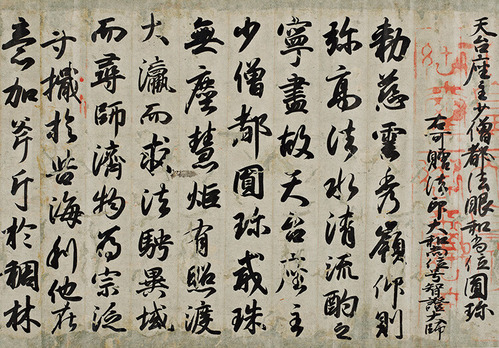 天台座主少僧都法眼和尚位圓珎
右可贈法印大和尚位号智證大師
勅慈雲秀嶺仰則
弥高法水清流酌之
寧盡故天台座主
少僧都圓珎戒珠
無塵慧炬有照渡
大瀛而求法騁異域
而尋師濟物為宗泛
寸檝於苦海利他在
意加斧斤於稠林